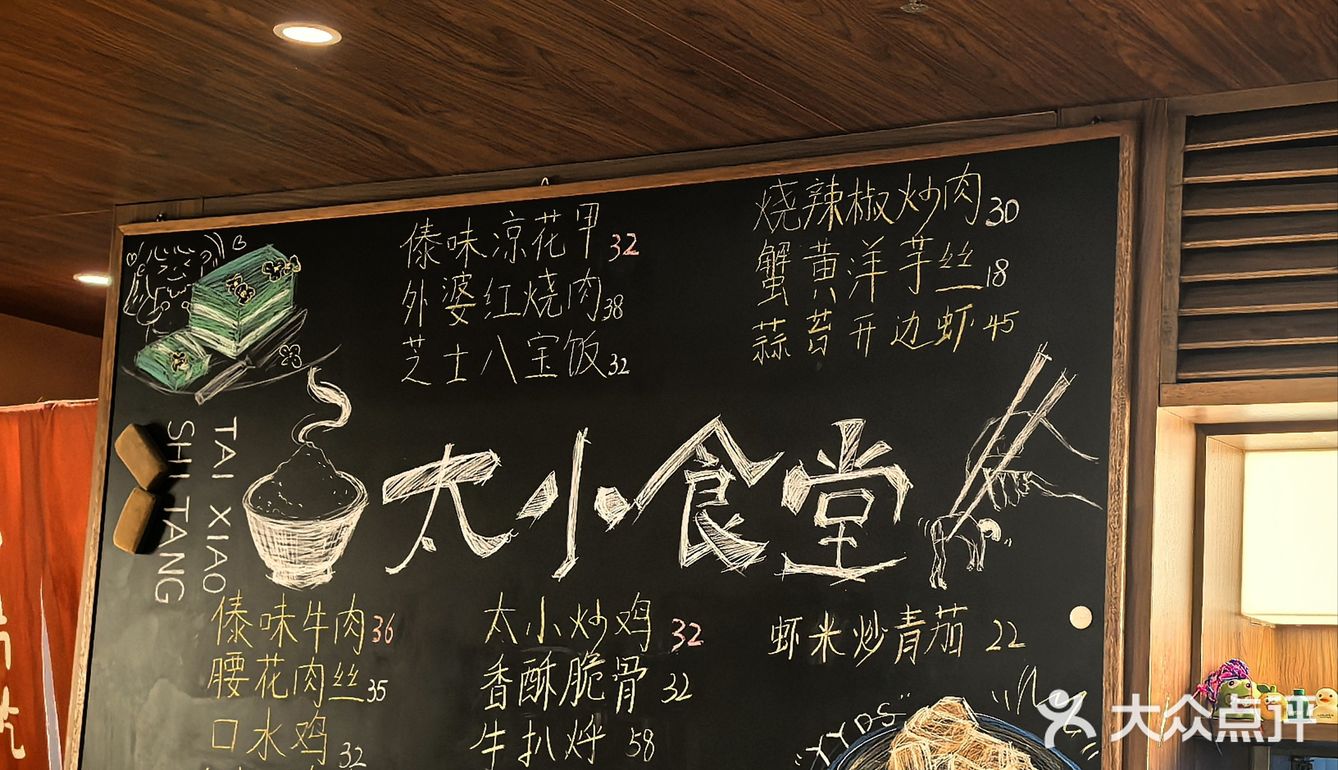 傣味凉花甲 32
外婆红烧肉 38
芝士八宝饭 32
烧辣椒炒肉 30
蟹黄洋芋丝 18
蒜苔开边虾 45
TAI XIAO
SHI TANG
太小食堂
傣味牛肉 36
腰花肉丝 35
口水鸡 32
太小炒鸡 32
香酥脆骨 32
牛扒烀 58
虾米炒青茄 22
YYDS
大众点评